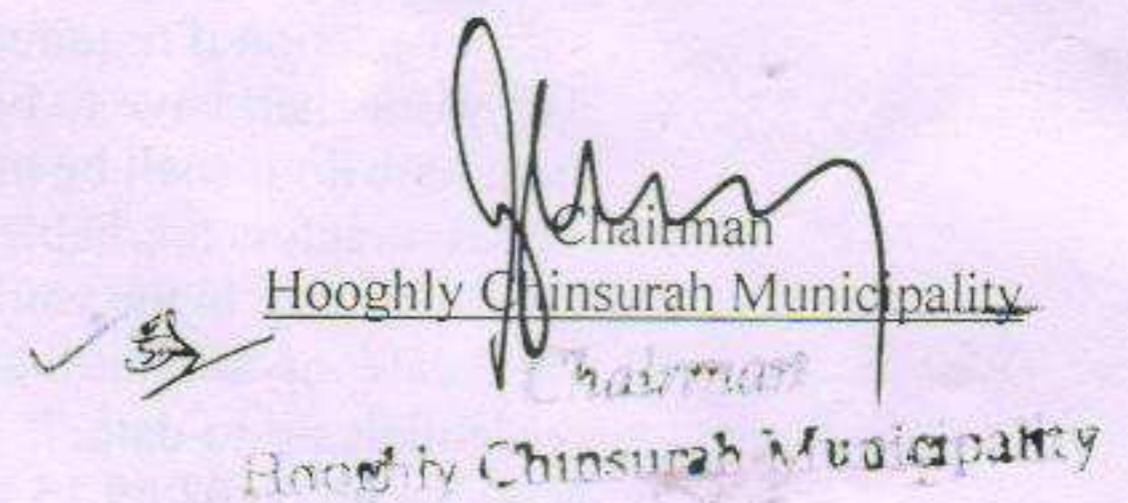 Chairman
Hooghly Chinsurah Municipality
Chairman
Hooghly Chinsurah Municipality